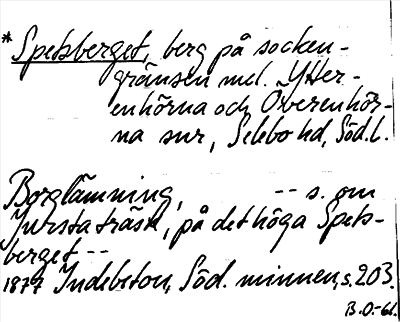 *Spetsberget, berg på socken-
gränsen mel. Ytter-
enhörna och Överenhör-
na snr, Selebo hd, Söd.l.
Borglämning, -- s. om
Jursta träsk, på det höga Spets-
berget --
1877 Indebetou, Söd. minnen, s. 203.
B.O.-61.